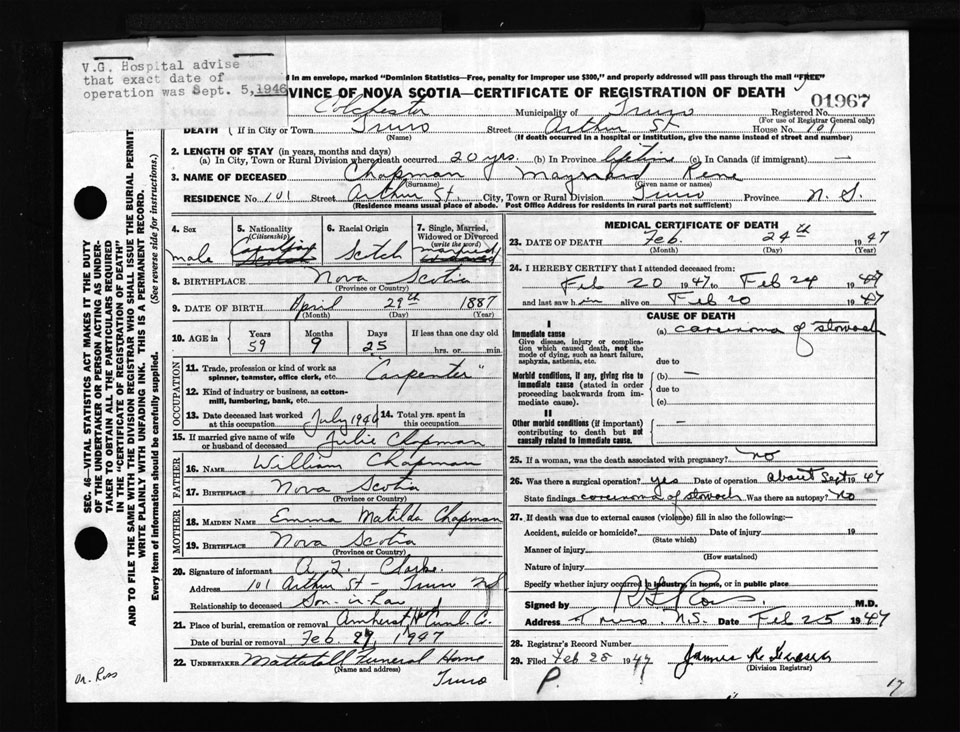 V.G. Hospital advise
that exact date of
operation was Sept. 5, 1946
d in an envelope, marked "Dominion Statistics—Free, penalty for improper use $300," and properly addressed will pass through the mail "FREE"
VINCE OF NOVA SCOTIA—CERTIFICATE OF REGISTRATION OF DEATH
01967
Colchester Municipality of Truro Registered No.
(For use of Registrar General only)
DEATH (If in City or Town Truro Street Arthur St House No. 101
(Name) (If death occurred in a hospital or institution, give the name instead of street and number)
2. LENGTH OF STAY (in years, months and days)
(a) In City, Town or Rural Division where death occurred 20 yrs. (b) In Province lifetime (c) In Canada (if immigrant) —
3. NAME OF DECEASED Chapman Maynard Rene
(Surname) (Given name or names)
RESIDENCE No. 101 Street Arthur St. City, Town or Rural Division Truro Province N. S.
(Residence means usual place of abode. Post Office Address for residents in rural parts not sufficient)
4. Sex male
5. Nationality (Citizenship) Canadian
6. Racial Origin Scotch
7. Single, Married, Widowed or Divorced (write the word) married
8. BIRTHPLACE Nova Scotia
(Province or Country)
9. DATE OF BIRTH April 29th 1887
(Month) (Day) (Year)
10. AGE in Years 59 Months 9 Days 25 If less than one day old
hrs. or min.
OCCUPATION
11. Trade, profession or kind of work as "Carpenter"
spinner, teamster, office clerk, etc.
12. Kind of industry or business, as cotton-
mill, lumbering, bank, etc.
13. Date deceased last worked at this occupation July 1946 14. Total yrs. spent in this occupation
15. If married give name of wife or husband of deceased Julie Chapman
FATHER
16. NAME William Chapman
17. BIRTHPLACE Nova Scotia
(Province or Country)
MOTHER
18. MAIDEN NAME Emma Matilda Chapman
19. BIRTHPLACE Nova Scotia
(Province or Country)
20. Signature of informant Clarke
Address 101 Arthur St - Truro NS
Relationship to deceased Son-in-Law
21. Place of burial, cremation or removal Amherst Cumb. Co.
Date of burial or removal Feb. 27, 1947
22. UNDERTAKER Mattatall Funeral Home
(Name and address)
Truro
MEDICAL CERTIFICATE OF DEATH
23. DATE OF DEATH Feb. 24th 1947
(Month) (Day) (Year)
24. I HEREBY CERTIFY that I attended deceased from:
Feb 20 1947 to Feb 24 1947
and last saw him alive on Feb 20 1947
CAUSE OF DEATH
I
Immediate cause (a) carcinoma of stomach
Give disease, injury or complica-
tion which caused death, not the
mode of dying, such as heart failure,
asphyxia, asthenia, etc.
due to
Morbid conditions, if any, giving rise to (b) —
immediate cause (stated in order due to
proceeding backwards from im-
mediate cause). (c)
II
Other morbid conditions (if important) —
contributing to death but not
causally related to immediate cause.
25. If a woman, was the death associated with pregnancy? no
26. Was there a surgical operation? yes Date of operation about Sept 1947
State findings carcinoma of stomach Was there an autopsy? no
27. If death was due to external causes (violence) fill in also the following:—
Accident, suicide or homicide? Date of injury 19
(State which)
Manner of injury
(How sustained)
Nature of injury
Specify whether injury occurred in industry, in home, or in public place
Signed by Ross M.D.
Address Truro. N.S. Date Feb 25 1947
28. Registrar's Record Number
29. Filed Feb 28 1947 James
(Division Registrar)
P.
17
Dr. Ross
SEC. 46—VITAL STATISTICS ACT MAKES IT THE DUTY
OF THE UNDERTAKER OR PERSON ACTING AS UNDER-
TAKER TO OBTAIN ALL THE PARTICULARS REQUIRED
IN THE "CERTIFICATE OF REGISTRATION OF DEATH"
AND TO FILE THE SAME WITH THE DIVISION REGISTRAR WHO SHALL ISSUE THE BURIAL PERMIT
WRITE PLAINLY WITH UNFADING INK. THIS IS A PERMANENT RECORD.
Every item of information should be carefully supplied. (See reverse side for instructions.)